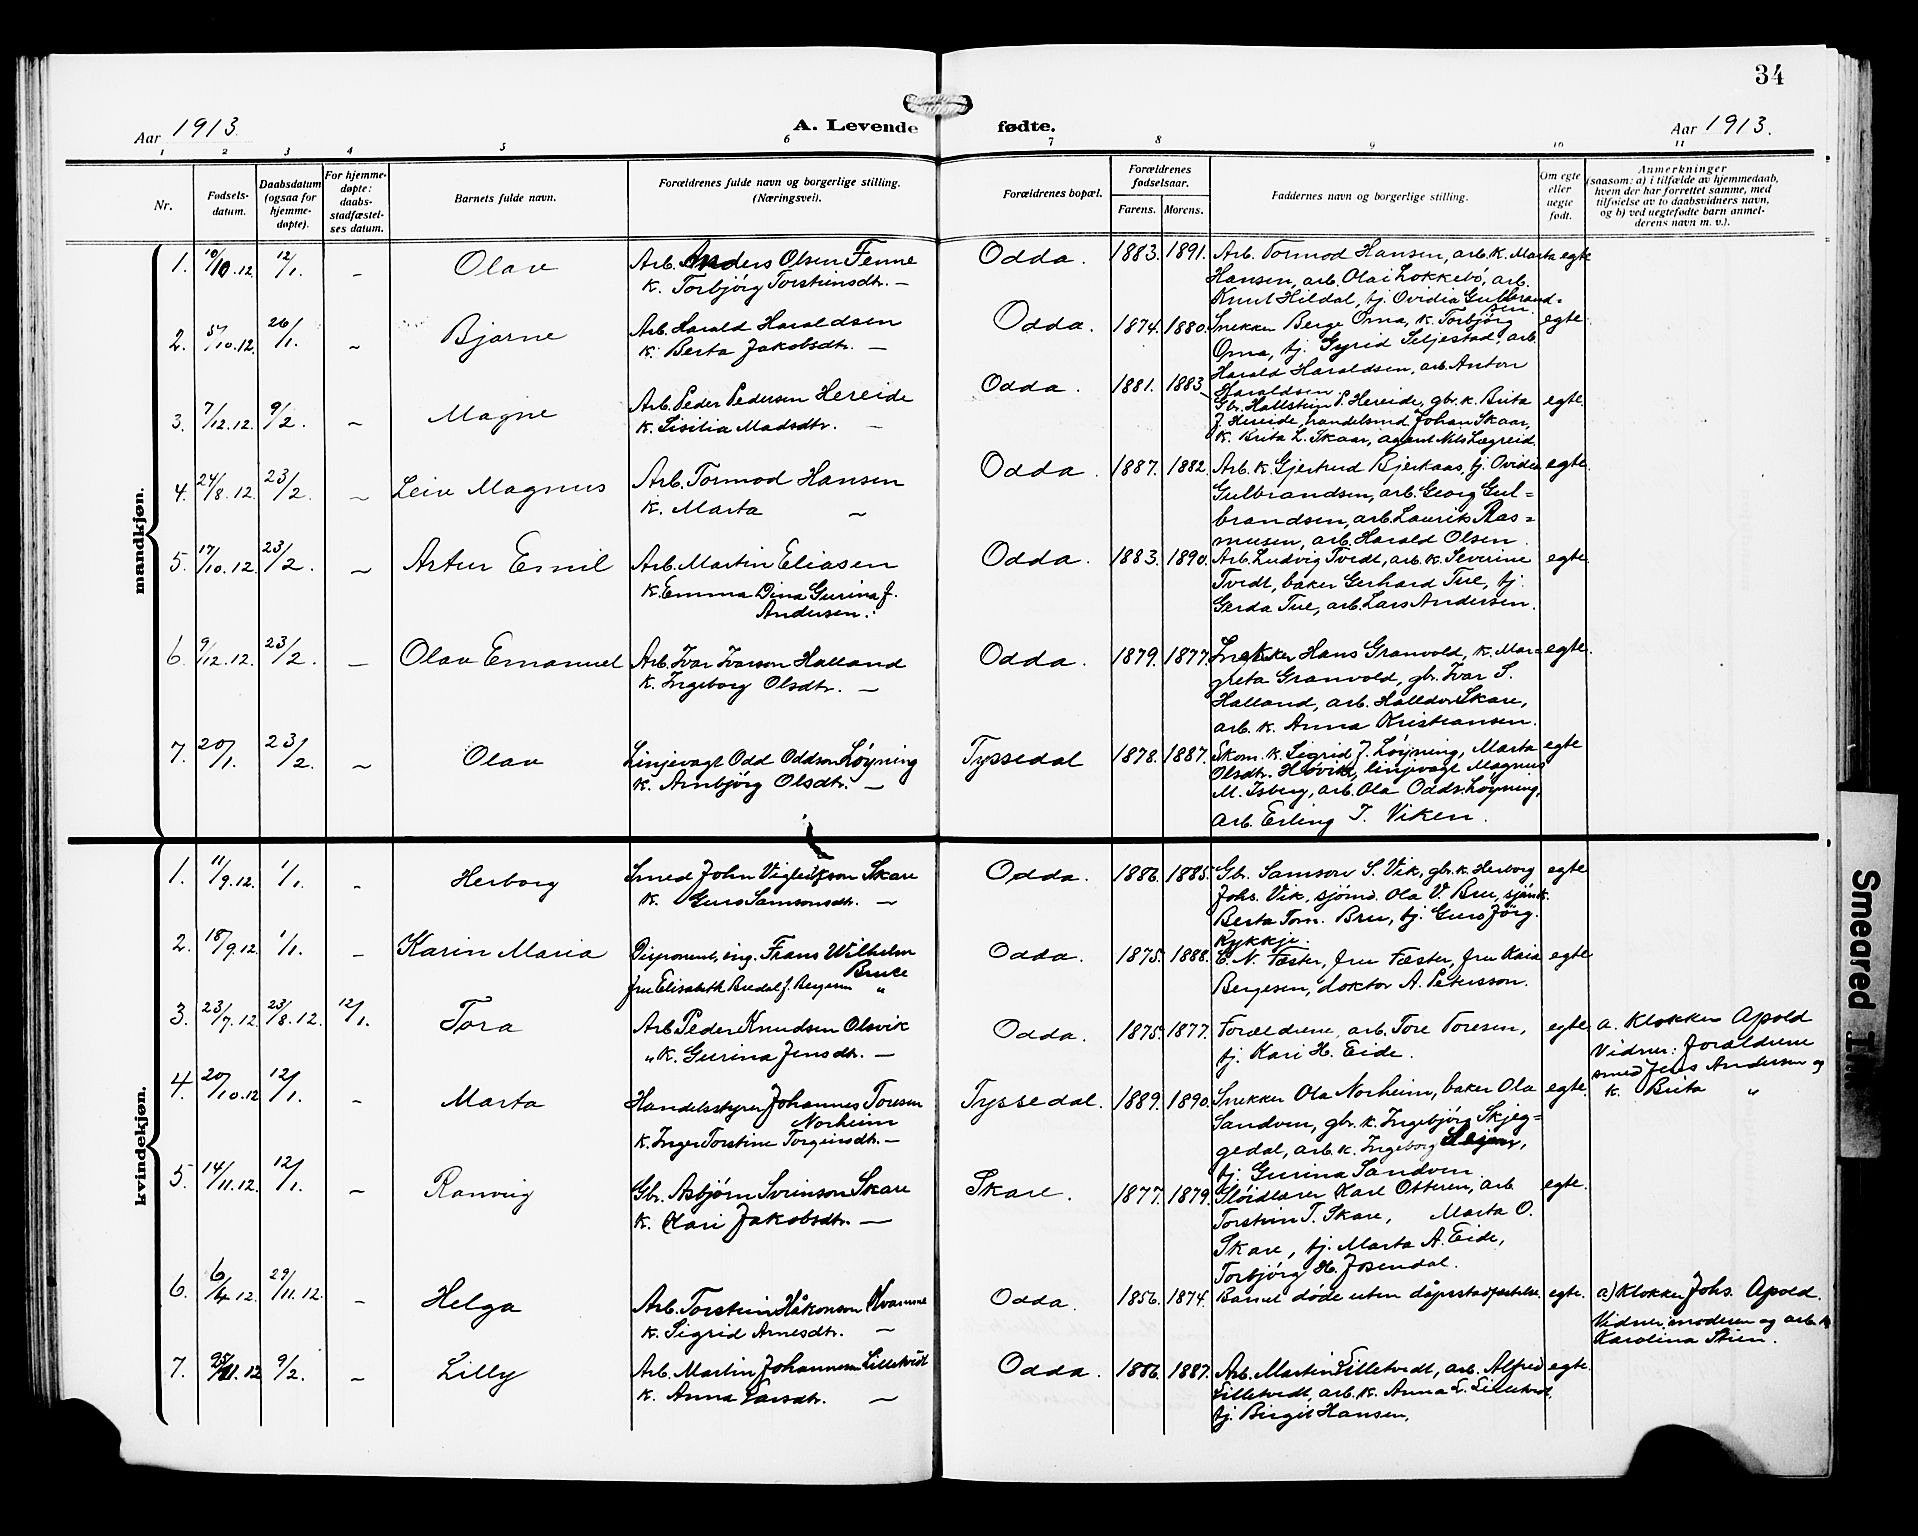 34
Aar 1913. A. Levende fødte. Aar 1913.
1 2 3 4 5 6 7 8 9 10 11
Nr. Fødsels-datum. Daabsdatum (ogsaa for hjemme-døpte). For hjemme-døpte: daabs-stadfæstel-ses datum. Barnets fulde navn. Forældrenes fulde navn og borgerlige stilling. (Næringsvei). Forældrenes bopæl. Forældrenes fødselsaar. Farens. Morens. Faddernes navn og borgerlige stilling. Om egte eller uegte født. Anmerkninger (saasom: a) i tilfælde av hjemmedaab, hvem der har forrettet samme, med tilføielse av to daabsvidners navn, og b) ved uegtefødte barn anmel-derens navn m. v.).
mandkjøn.
1. 10/10.12 12/1. – Olav Arb. Anders Olsen Fenne Odda. 1883. 1891. Arb. Tormod Hansen, arb. k. Marta egte
k. Torbjörg Torsteinsdtr. — Hansen, arb. Ola i Lokkebö, arb.
Knut Hildal, tj. Ovidia Gulbrand=
sen.
2. 5/10.12. 26/1. ~ Bjarne Arb. Harald Haraldsen Odda. 1874. 1880. Snekker Berge Oma, k. Torbjörg egte
k. Berta Jakobsdtr. — Oma, tj. Gyrid Seljestad, arb.
Harald Haraldsen, arb. Anton
Haraldsen
3. 7/12.12. 9/2. ~ Magne Arb. Peder Pedersen Hereide Odda. 1881. 1883. Gbr. Hallstein P. Hereide, gbr. k. Brita egte.
k. Sisilia Madsdtr. — J. Hereide, handelsmd. Johan Skaar,
k. Brita L. Skaar, agent Nils Lægreid
4. 24/8.12. 23/2. ~ Leiv Magnus Arb. Tormod Hansen Odda. 1887. 1882. Arb. k. Gjertrud Bjerkaas, tj. Ovidia egte
k. Marta ~ Gulbrandsen, arb. Georg Gul=
brandsen, arb. Laurits Ras=
musen, arb. Harald Olsen.
5. 17/10.12. 23/2. ~ Artur Emil Arb. Martin Eliasen Odda. 1883. 1890. Arb. Ludvig Tvedt, arb. k. Severine egte
k. Emma Dina Gurina f. Tvedt, baker Gerhard Tue, tj.
Andersen. Gerda Tue, arb. Lars Andersen.
6. 9/12.12. 23/2. – Olav Emanuel Arb. Ivar Ivarson Halland Odda. 1879. 1877. Snekker Hans Granvold, k. Mar= egte.
k. Ingeborg Olsdtr. — greta Granvold, gbr. Ivar S.
Halland, arb. Halldor Skare,
arb. k. Anna Kristiansen.
7. 20/1. 23/2. ~ Olav Linjevagt Odd Oddson Löyning Tyssedal 1878. 1887. Skom. k. Sigrid J. Löyning, Marta egte
k. Arnbjörg Olsdtr. — Olsdtr. linjevagt Magnus
M. Isberg, arb. Ola Odds. Löyning,
arb. Erling T. Viken.
kvindekjøn.
1. 11/9.12. 1/1. – Herborg Smed John Vigleikson Skare Odda. 1886. 1885. Gb. Samson S. Vik, gbr. k. Herborg egte
k. Guro Samsonsdtr. — Johs. Vik, sjömd. Ola V. Bru, sjömk.
Berta Tom. Bru, tj. Guro Jörg.
Kykkje.
2. 18/9.12. 1/1. – Karin Maria Disponent, ing. Frans Wilhelm Odda. 1875. 1888. C. N. Fæster, fru Fæster, fru Kaia egte
Bruce
fru Elisabeth Bredal f. Bergesen „ Bergesen, doktor A. Petersson.
3. 23/7.12. 23/8.12. 12/1. Tora Arb. Peder Knudsen Olsvik Odda. 1875. 1877. Forældrene, arb. Tore Toresen, egte a. Klokker Apold
„ k. Gurina Jensdtr. — tj. Kari H. Eide. Vidner: foraldrene
smed Jens Andersen og
k. Brita „
4. 20/10.12 12/1. – Marta Handelsstyrer Johannes Toresen Tyssedal. 1889. 1890. Snekker Ola Norheim, baker Ola egte.
Norheim Sandven, gbr. k. Ingebjörg Skjeg=
k. Inger Torstine Torgeirsdtr. — gedal, arb. k. Ingeborg
tj. Gurina Sandven
5. 14/11.12. 12/1. ~ Ranveig Gbr. Asbjørn Sveinson Skare Skare. 1877. 1879. Slöidlærer Karl Otteren, arb. egte.
k. Kari Jakobsdtr. — Torstein T. Skare, Marta O.
Skare, tj. Marta A. Eide,
Torbjörg H. Jösendal.
6. 6/4.12. 29/11.12. – Helga Arb. Torstein Håkonson Kvamme Odda. 1856. 1874. Barnet döde uten dåpsstadfæstelse. egte. a) Klokker Johs. Apold.
k. Sigrid Arnesdtr. — Vidner: moderen og arb. k.
Karolina Stien.
7. 25/11.12 9/2. ~ Lilly Arb. Martin Johannesen Lilletvedt Odda. 1886. 1887. Arb. Martin Lilletvedt, arb. Alfred egte.
k. Anna Larsdtr. — Lilletvedt, arb. k. Anna L. Lilletvedt,
tj. Birgit Hansen.
Smeared